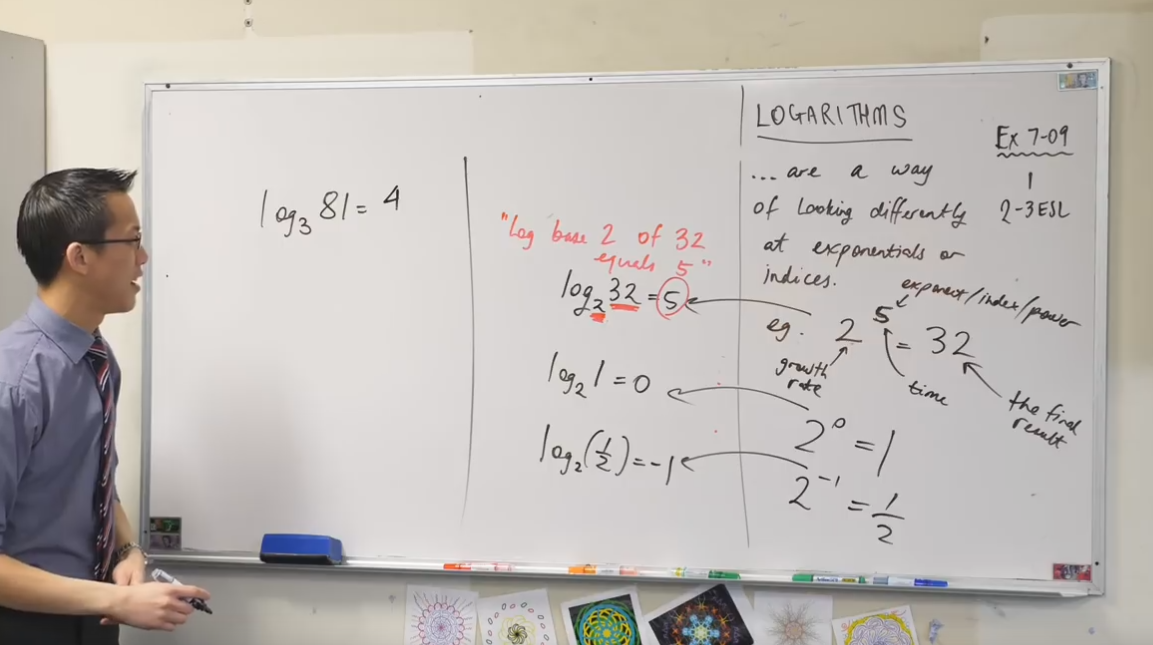 log₃81=4
"Log base 2 of 32
equals 5"
log₂32=5
log₂1=0
log₂(1/2)=-1
LOGARITHMS
...are a way
of looking differently
at exponentials or
indices.
exponent/index/power
eg. 2⁵=32
growth
rate
time
the final
result
2⁰=1
2⁻¹=1/2
Ex 7-09
1
2-3ESL